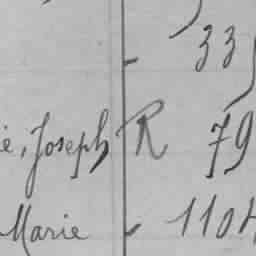 - 33
Joseph R 79
Marie - 110